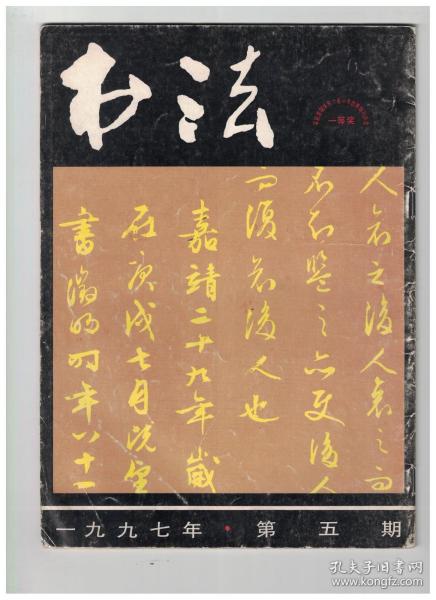 书法
一等奖
人哀之後人哀之而
不鑒之亦使後人
而復哀後人也
嘉靖二十九年歲
在庚戌七月既望
書徵明時年八十一
一九九七年·第五期
孔夫子旧书网
www.kongfz.com